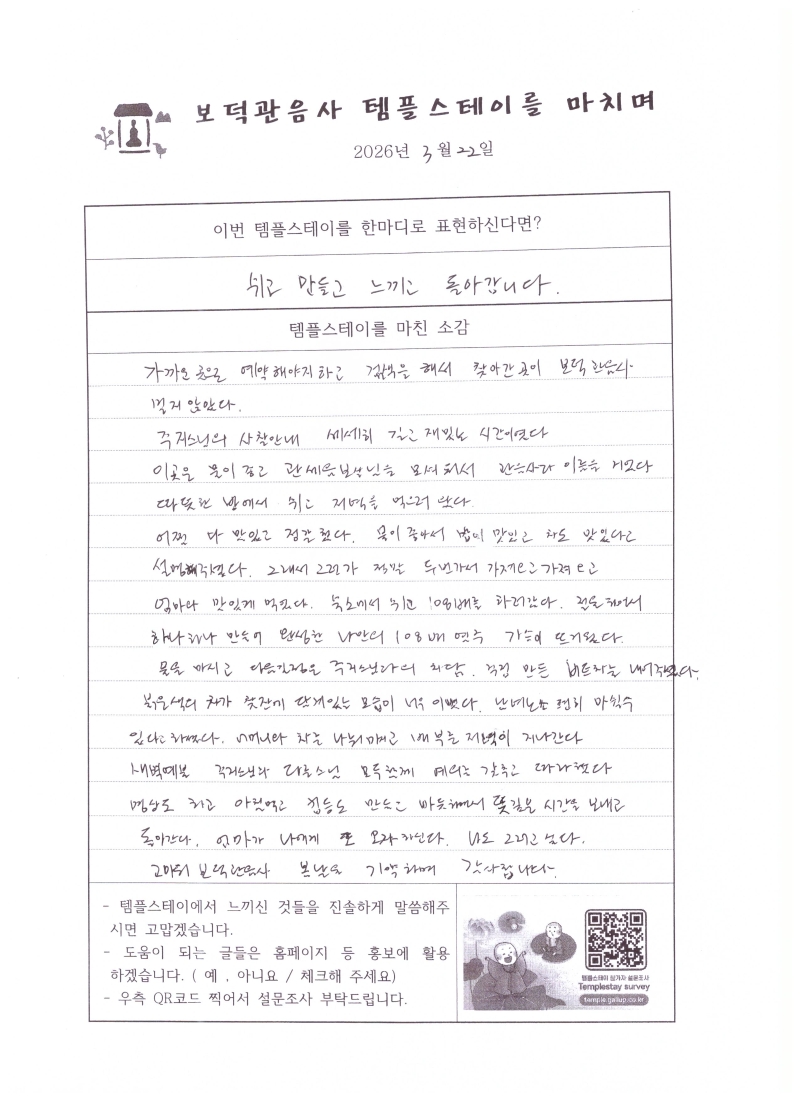 보덕관음사 템플스테이를 마치며
2026년 3월 22일
이번 템플스테이를 한마디로 표현하신다면?
쉬고 만들고 느끼고 돌아갑니다.
템플스테이를 마친 소감
가까운 곳으로 예약해야지하고 검색을 해서 찾아간 곳이 보덕관음사
멀지 않았다.
주지스님의 사찰안내 세세히 길고 재밌는 시간이였다
이곳은 물이 좋고 관세음보살님을 모셔와서 관음사라 이름을 지었다
따뜻한 방에서 쉬고 저녁을 먹으러 갔다.
어쩜 다 맛있고 정갈했다. 물이 좋아서 밥이 맛있고 차도 맛있다고
설명해주셨다. 그래서 그런가 정말 두번가서 가져오고 가져오고
엄마와 맛있게 먹었다. 숙소에서 쉬고 108배를 하러갔다.
하나하나 만들어 완성한 나만의 108배 염주 가슴이 뜨거웠다.
물을 마시고 다음일정은 주지스님과의 차담. 직접 만든 내어주셨다.
붉은색의 차가 찻잔에 담겨있는 모습이 너무 이뻤다. 마실수
있다고 하셨다. 어머니와 차를 나눠마시고 저녁이 지나간다
새벽예불 주지스님과 다른스님 모두함께 예의를 갖추고 따라했다
명상도 하고 아침먹고 컵등도 만들고 뜻깊은 시간을 보내고
돌아간다. 엄마가 나에게 또 오자하신다. 나도 그러고 싶다.
고마워 보덕관음사 봄날을 기약하며 감사합니다.
- 템플스테이에서 느끼신 것들을 진솔하게 말씀해주
시면 고맙겠습니다.
- 도움이 되는 글들은 홈페이지 등 홍보에 활용
하겠습니다. ( 예 , 아니요 / 체크해 주세요)
- 우측 QR코드 찍어서 설문조사 부탁드립니다.
템플스테이 참가자 설문조사
Templestay survey
temple.gallup.co.kr